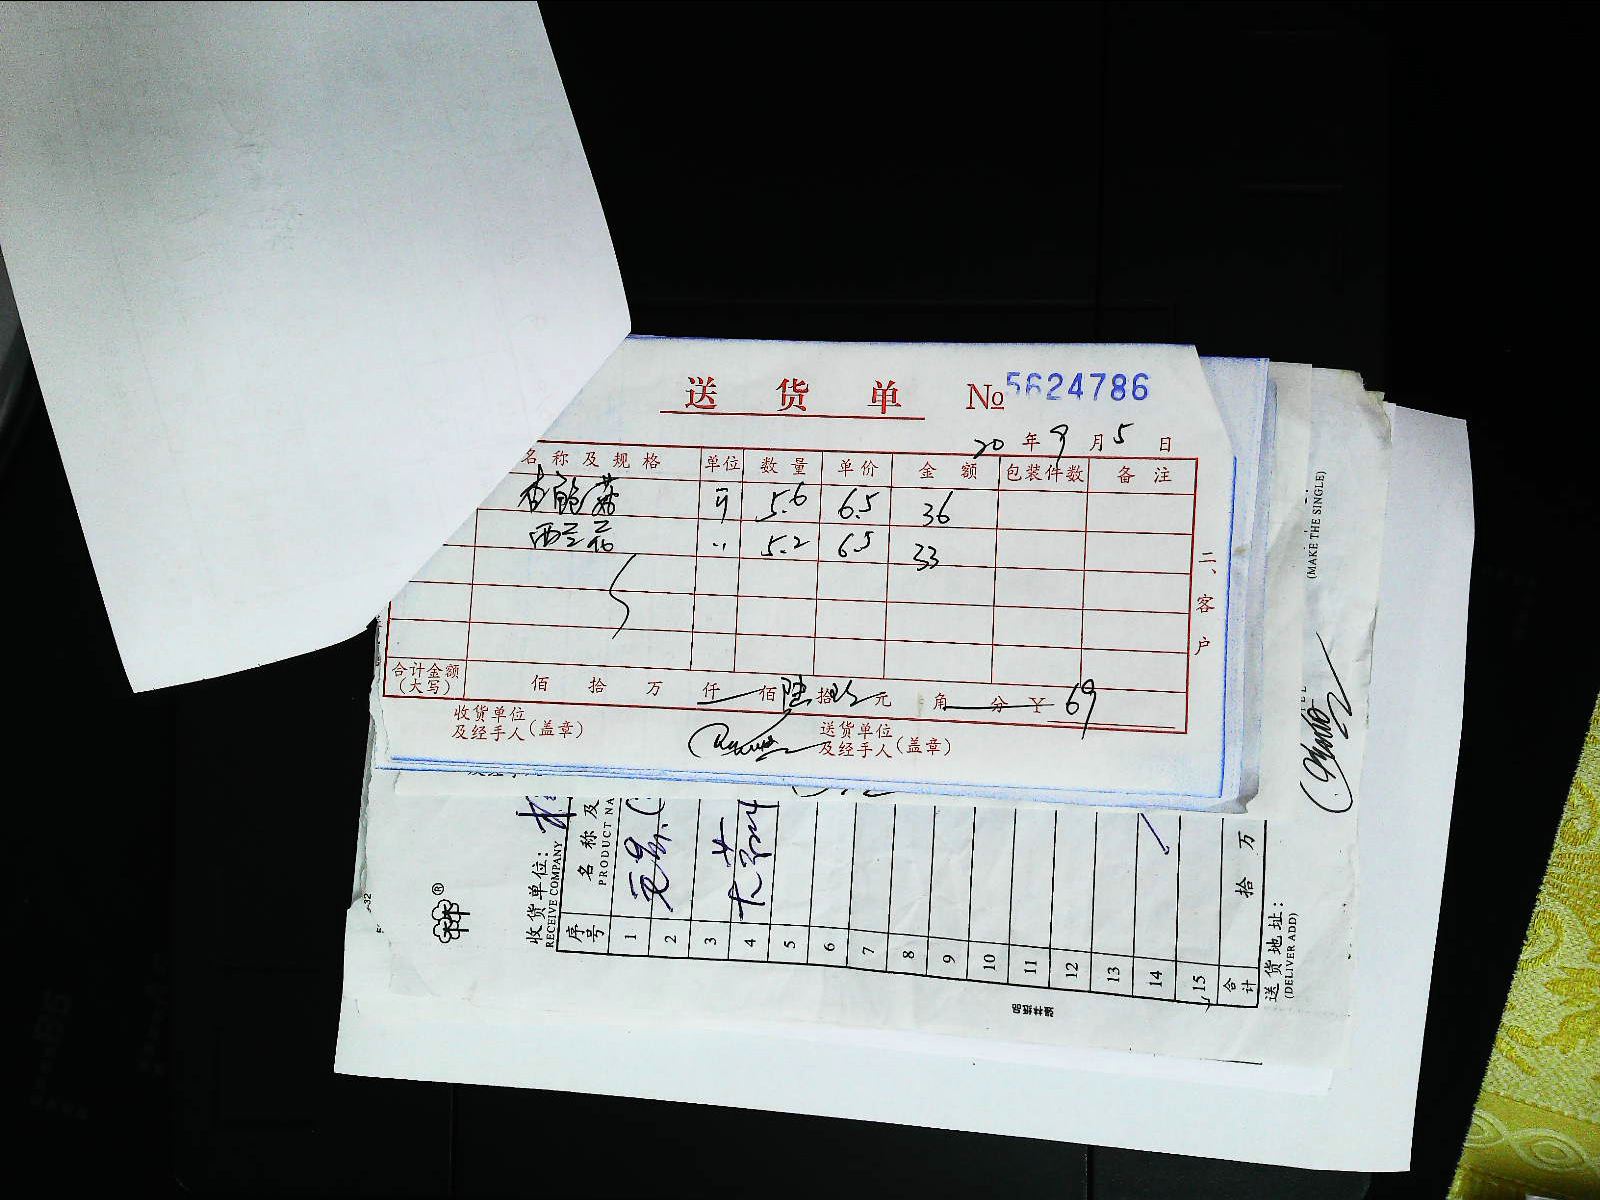 送 货 单 №5624786
20 年 9 月 5 日
名 称 及 规 格 单位 数 量 单价 金 额 包装件数 备 注
杏鲍菇 斤 5.6 6.5 36
西兰花 〃 5.2 6.5 33
二、客户
合计金额
(大写) 佰 拾 万 仟 佰 陆 拾 玖 元 角 分 ¥ 69
收货单位
及经手人(盖章)
送货单位
及经手人(盖章)
(MAKE THE SINGLE)
收货单位:
RECEIVE COMPANY
序号 名 称 及
PRODUCT NA
1
2
3
4
5
6
7
8
9
10
11
12
13
14
15
合计 拾 万
送货地址:
(DELIVER ADD)
®
-32